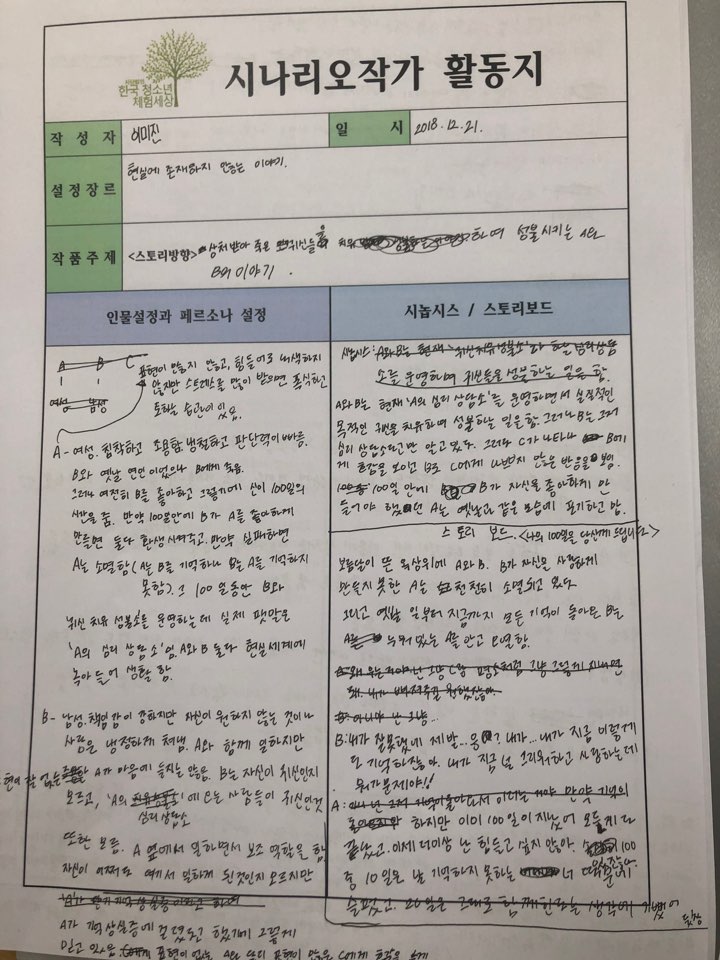 사단법인
한국 청소년
체험세상
시나리오작가 활동지
작 성 자 이미진 일 시 2018.12.21.
설 정 장 르 현실에 존재하지 않는 이야기.
작 품 주 제 <스토리방향> 상처받아 죽은 귀신들을 치유하여 성불시키는 A와
B의 이야기.
인물설정과 페르소나 설정
A B C
여성 남성
표현이 많지 않고, 힘들어도 내색하지
않지만 스트레스를 많이 받으면 폭식하고
토하는 습관이 있음.
A - 여성. 침착하고 조용함. 냉철하고 판단력이 빠름.
B와 옛날 연인이었으나 B에게 죽음.
그러나 여전히 B를 좋아하고 그렇기에 신이 100일의
시간을 줌. 만약 100일안에 B가 A를 좋아하게
만들면 둘다 환생시켜주고. 만약 실패하면
A는 소멸함(A는 B를 기억하나 B는 A를 기억하지
못함). 그 100일동안 B와
귀신 치유 성불소를 운영하는데 실제 팻말은
'A의 심리 상담소'임. A와 B 둘다 현실세계에
녹아 들어 생활 함.
B - 남성. 책임감이 강하지만 자신이 원하지 않는 것이나
사람은 냉정하게 쳐냄. A와 함께 일하지만
표현이 잘 없는 A가 마음에 들지는 않음. B는 자신이 귀신인지
모르고, 'A의 심리상담소'에 오는 사람들이 귀신인것
또한 모름. A 옆에서 일하면서 보조 역할을 함.
자신이 어쩌다 여기서 일하게 된것인지 모르지만
A가 기억상실증에 걸렸다고 했기에 그렇게
믿고 있음. 표현이 없는 A와 달리 표현이 많은 C에게 호감을
시놉시스 / 스토리보드
시놉시스 : A와 B는 현재 '귀신치유성불소'라 하는 심리상담
소를 운영하며 귀신들을 성불하는 일을 함.
A와 B는 현재 'A의 심리 상담소'를 운영하면서 실질적인
목적인 귀신을 치유하며 성불하는 일을 함. 그러나 B는 그저
심리 상담소라고만 알고 있다. 그러다 C가 나타나 B에
게 호감을 보이고 B도 C에게 나쁘지 않은 반응을 보임.
100일 안에 B가 자신을 좋아하게 만
들어야 했던 A는 옛날과 같은 모습에 포기하고 맘.
스토리 보드. <나의 100일을 당신께 드립니다>
보름달이 뜬 옥상위에 A와 B. B가 자신을 사랑하게
만들지 못한 A는 천천히 소멸되고 있다.
그리고 옛날 일부터 지금까지 모든 기억이 돌아온 B는
누워있는 A를 안고 오열함.
B: 내가 잘못했네 제발... 응? 내가... 내가 지금 이렇게
다 기억하잖아. 내가 지금 널 그리워하고 사랑하는데
뭐가 문제야!!
A: 하지만 이미 100일이 지났어 모든게 다
끝났고. 이제 더이상 난 힘들고 싶지 않아. 100일
중 10일은 날 기억하지 못하는 너 때문에
슬펐고. 20일은 그대로 함께한다는 생각에 기뻤어